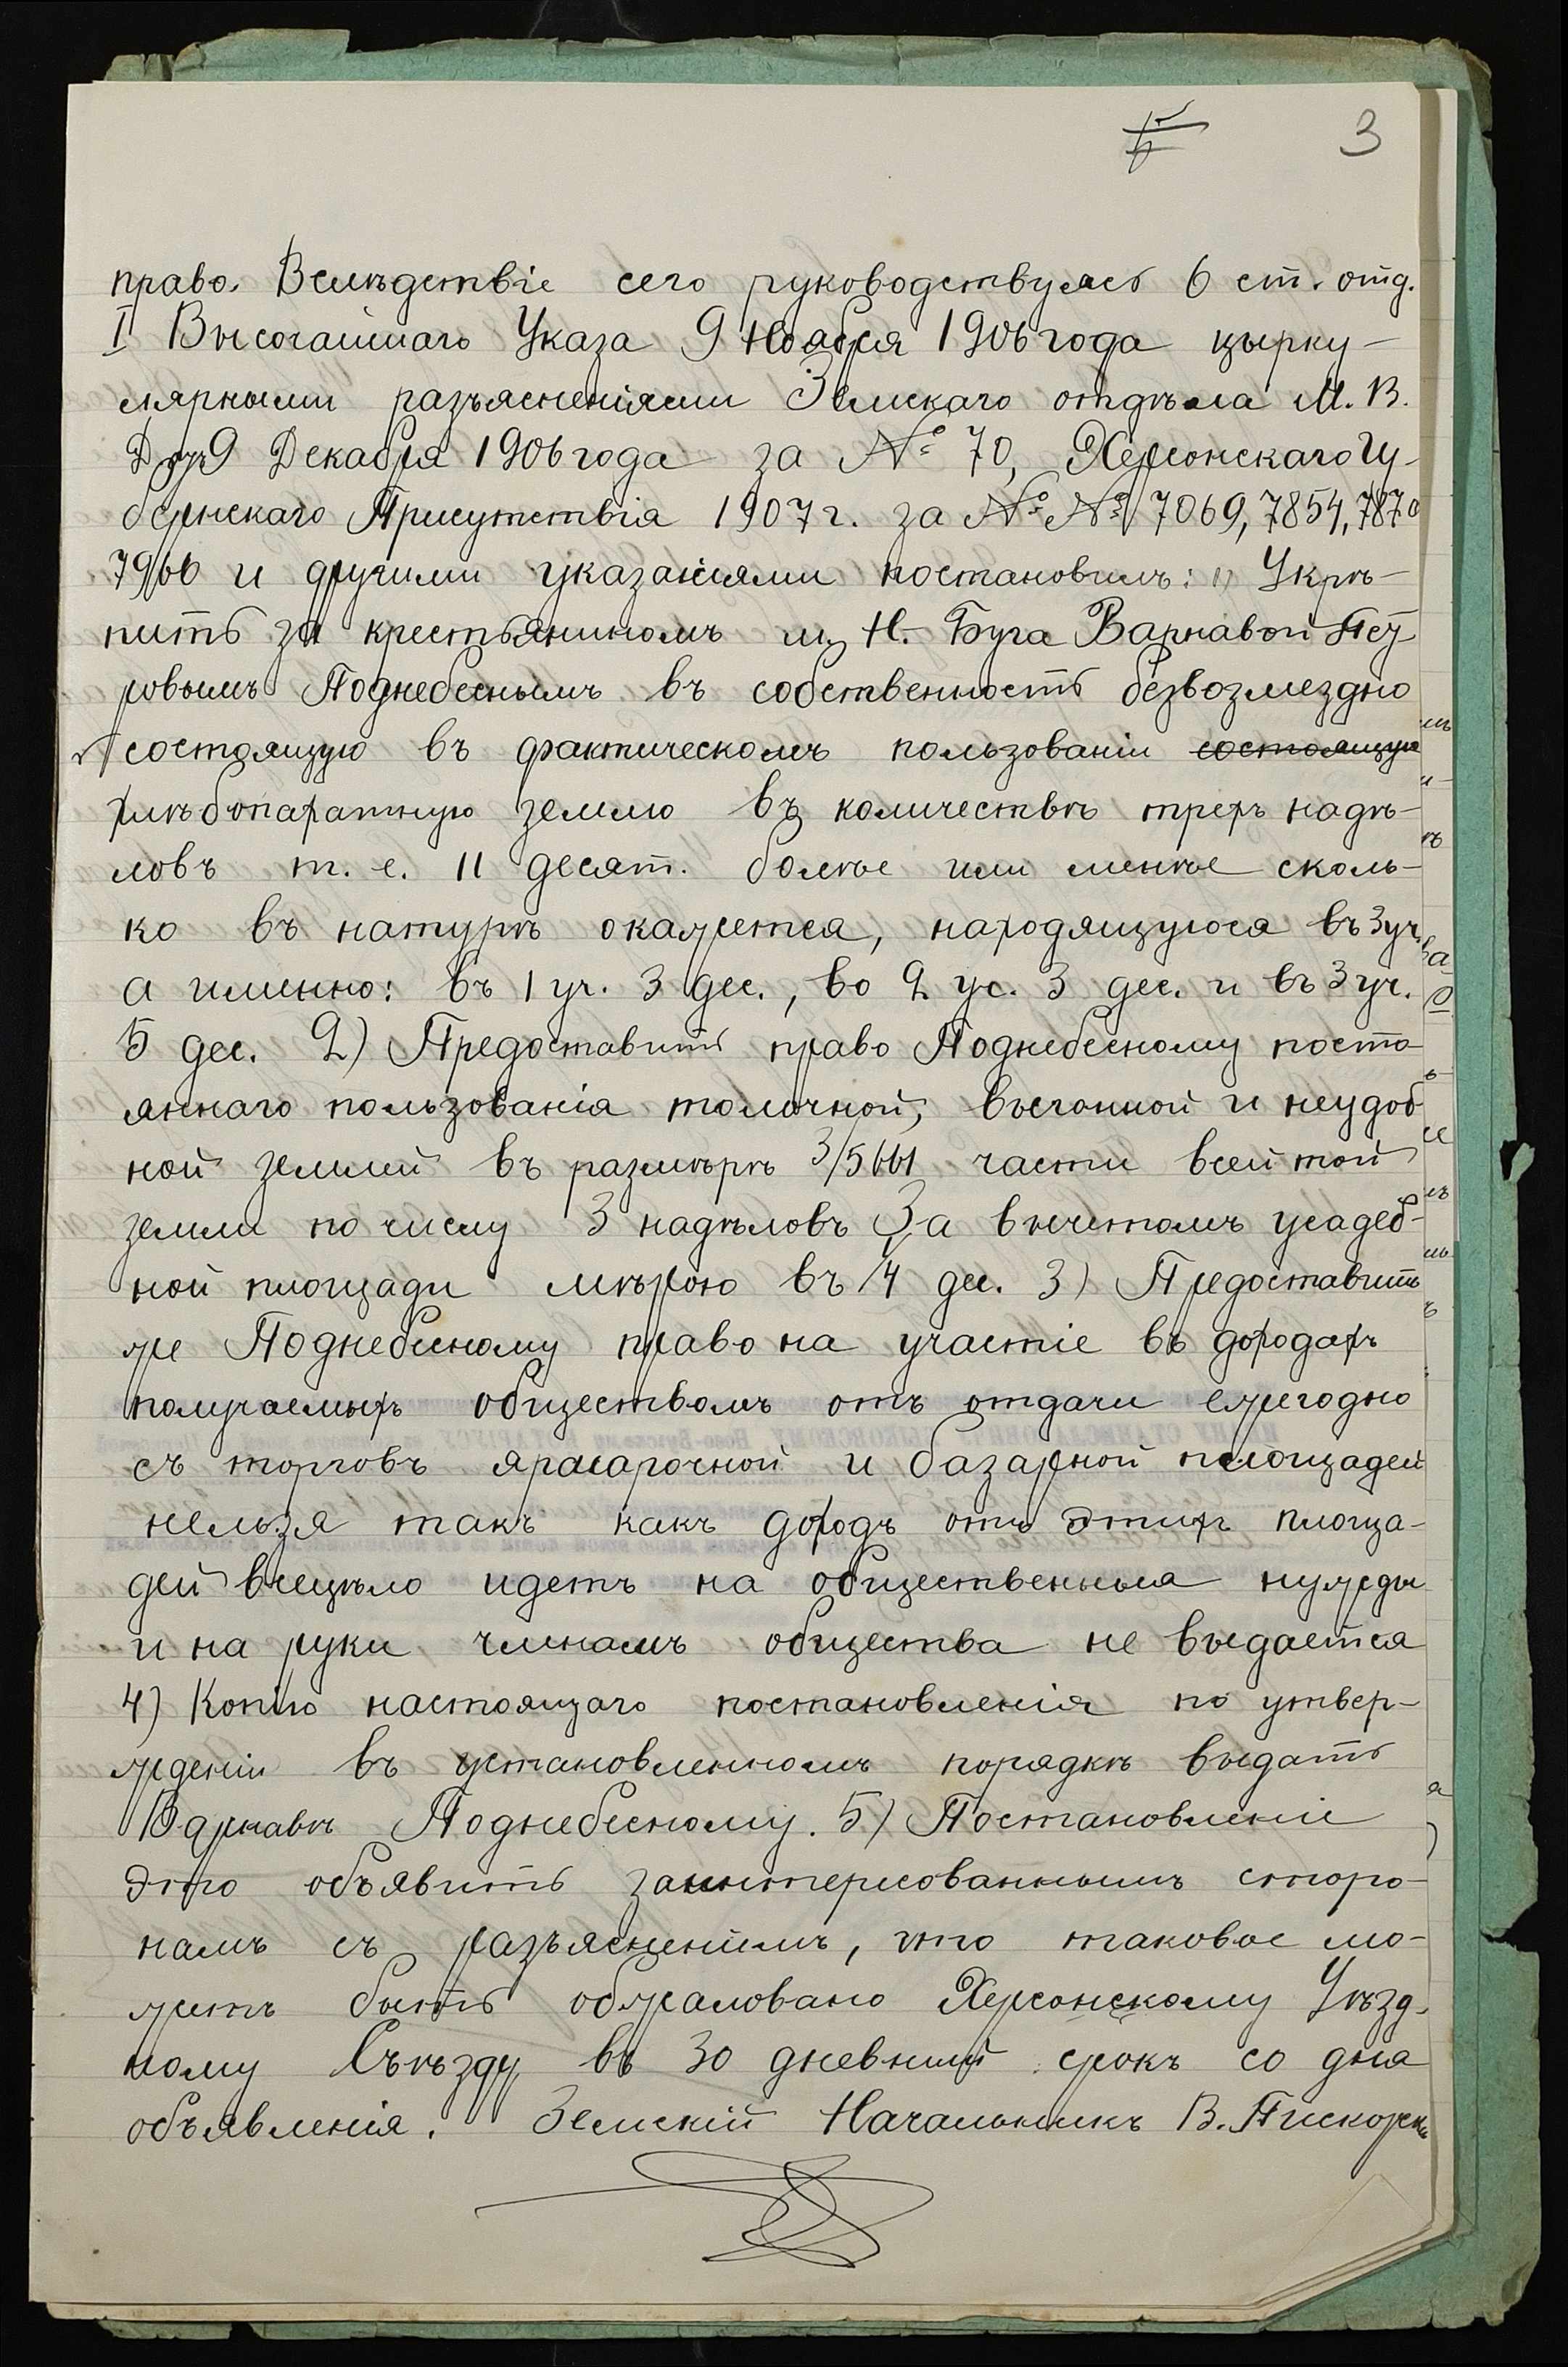 3
право. Вслѣдствіе сего руководствуясь 6 ст. отд.
I Высочайшаго Указа 9 Ноября 1906 года цырку-
лярными разъясненіями Земскаго отдѣла М. В.
Д. 9 Декабря 1906 года за № 70, Херсонскаго Гу-
бернскаго Присутствія 1907 г. за №№ 7069, 7854, 7870
7966 и другими указаніями постановилъ: 1) Укрѣ-
пить за крестьяниномъ из Н. Буга Варнавой Пет
ровымъ Поднебеснымъ въ собственность безвозмездно
состоящую въ фактическомъ пользованіи состоящую
хлѣбопахатную землю въ количествѣ трехъ надѣ-
ловъ т. е. 11 десят. болѣе или менѣе сколь-
ко въ натурѣ окажется, находящуюся въ 3 уч.
а именно: въ 1 уч. 3 дес., во 2 уч. 3 дес. и въ 3 уч.
5 дес. 2) Предоставить право Поднебесному посто
яннаго пользованія толочной, выгонной и неудоб
ной землей въ размѣрѣ 3/5661 части всей той
земли по числу 3 надѣловъ За вычетомъ усадеб-
ной площади мѣрою въ 1/4 дес. 3) Предоставить
же Поднебесному право на участіе въ доходахъ
получаемыхъ обществомъ отъ отдачи ежегодно
съ торговъ ярмарочной и базарной площадей
нельзя такъ какъ доходъ отъ этихъ площа-
дей всецѣло идетъ на общественныя нужды
и на руки членамъ общества не выдается
4) Копію настоящаго постановленія по утвер-
жденіи въ установленномъ порядкѣ выдать
Варнавѣ Поднебесному. 5) Постановленіе
это объявить заинтересованнымъ сторо-
намъ съ разъясненіемъ, что таковое мо-
жетъ быть обжаловано Херсонскому Уѣзд-
ному Съѣзду въ 30 дневный срокъ со дня
объявленія. Земскій Начальникъ В.